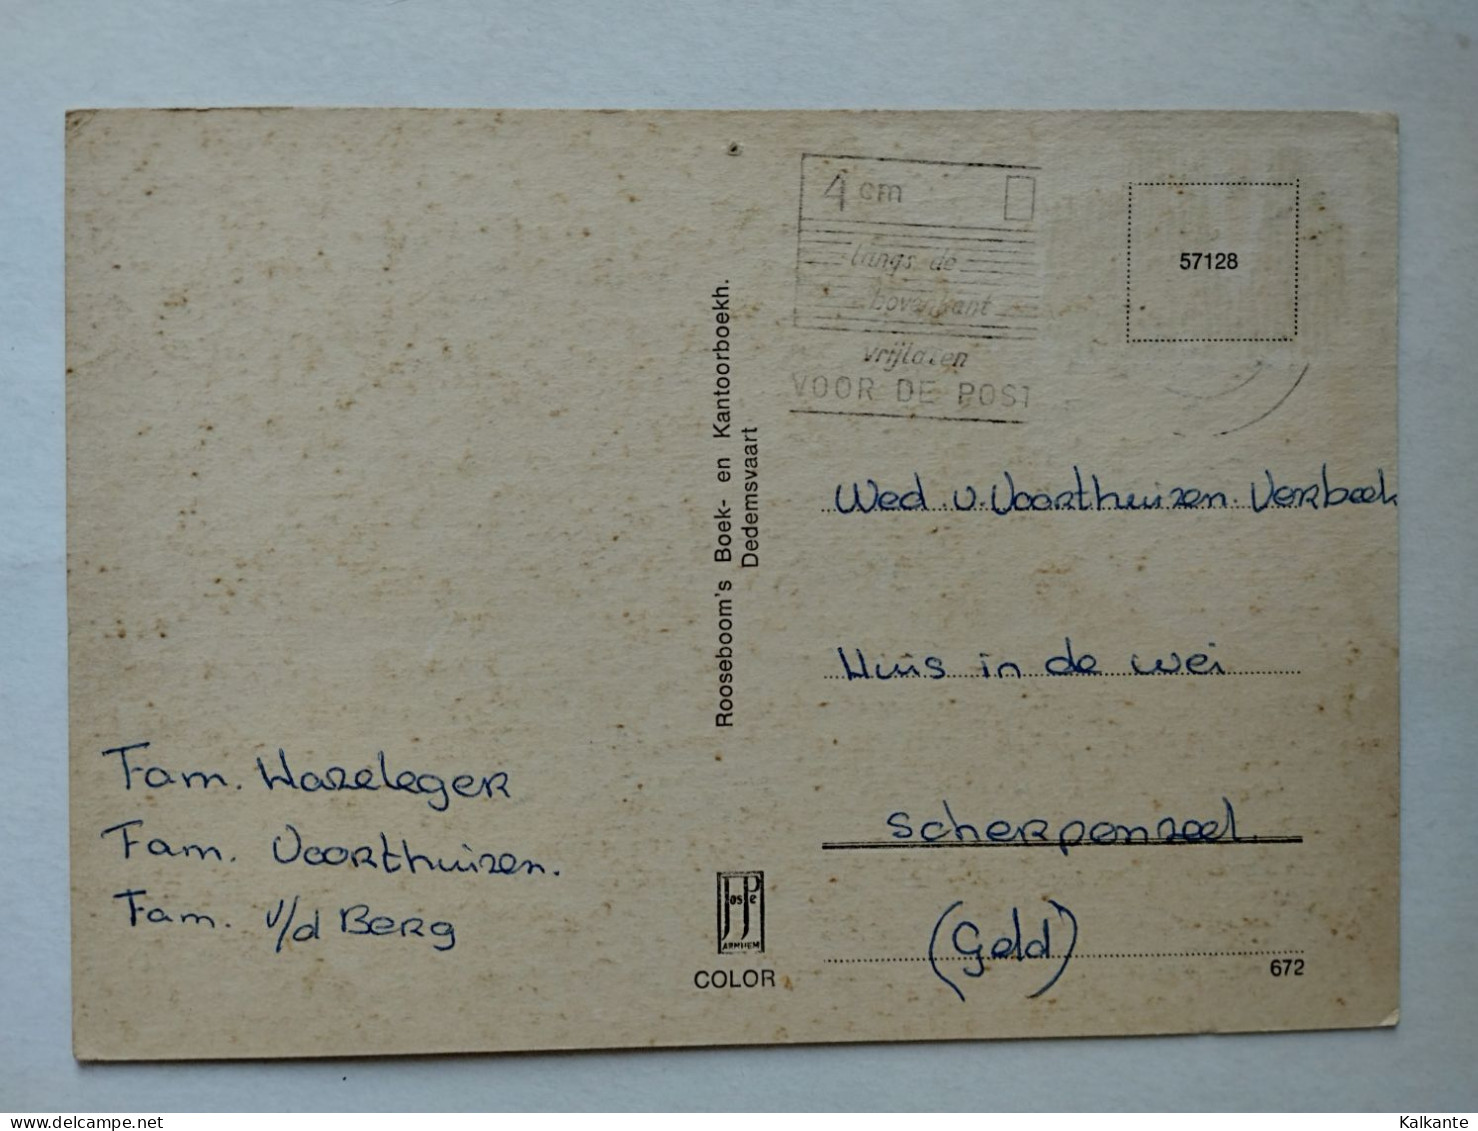 4 cm
langs de
bovenkant
vrijlaten
VOOR DE POST
57128
Rooseboom's Boek- en Kantoorboekh.
Dedemsvaart
Wed. v. Voorthuizen. Verbeek
Huis in de wei
Scherpenzeel.
(Geld)
Fam. Wazeleger
Fam. Voorthuizen.
Fam. v/d Berg
JosPé
ARNHEM
COLOR
672
Kalkante
delcampe.net